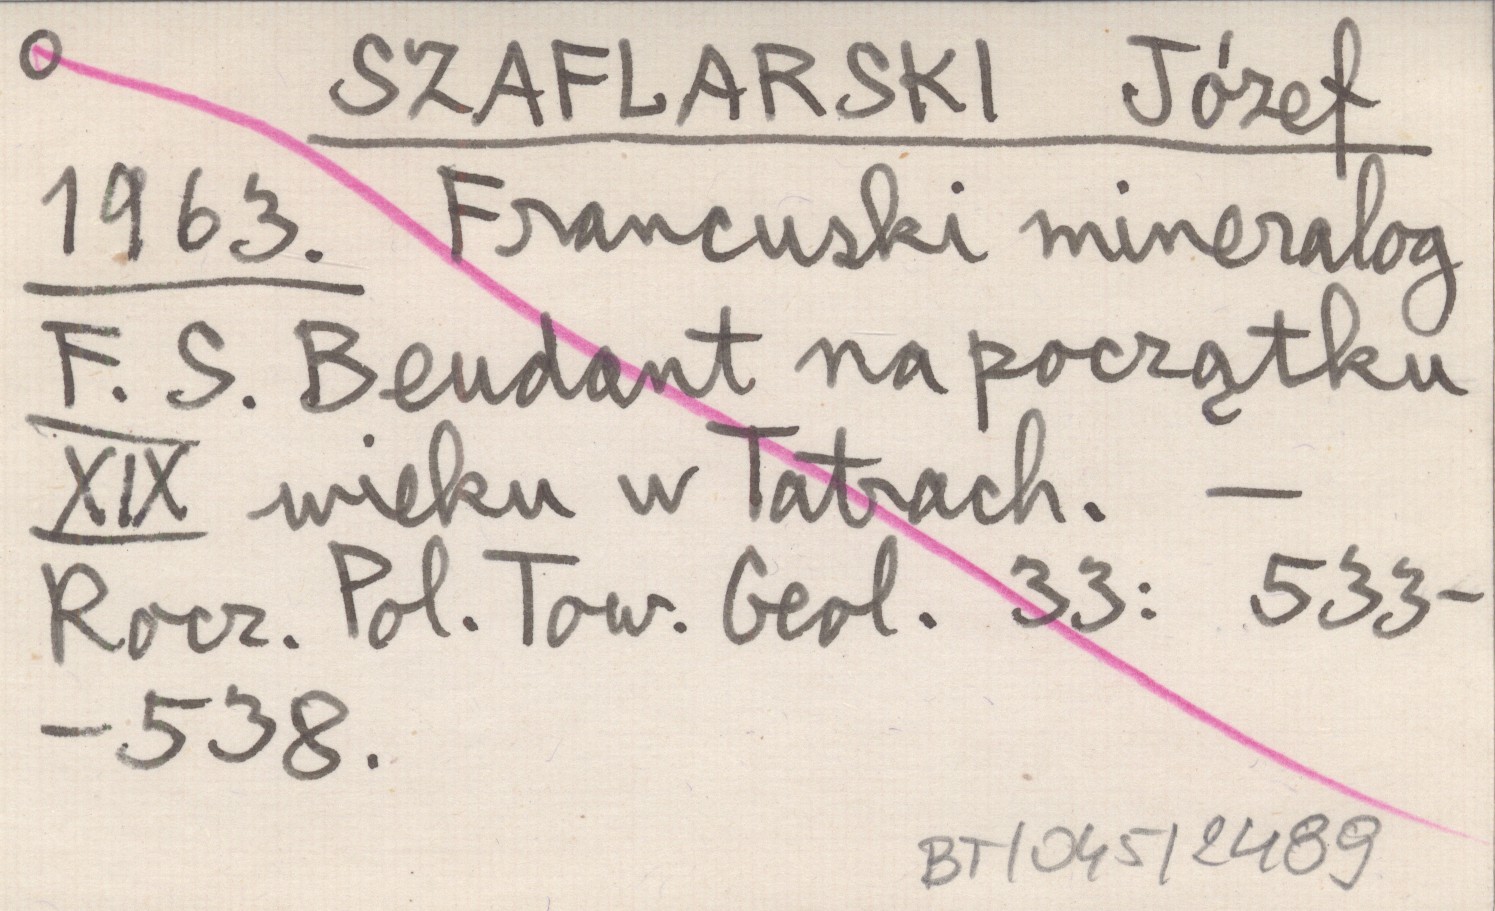 O SZAFLARSKI Józef
1963. Francuski mineralog
F. S. Beudant na początku
XIX wieku w Tatrach. —
Rocz. Pol. Tow. Geol. 33: 533-
-538.
BT/045/2489